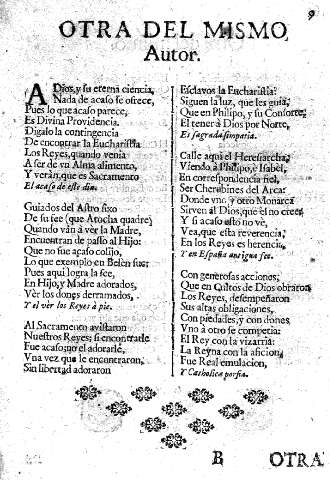 9
OTRA DEL MISMO
Autor.
A Dios, y su eterna ciencia,
Nada de acaso se ofrece,
Pues lo que acaso parece,
Es Divina Providencia.
Digalo la contingencia
De encontrar la Eucharistia
Los Reyes, quando venia
A ser de vn Alma alimento,
Y veràn, que es Sacramento
El acaso de este dia.
Guiados del Astro fixo
De su fee (que Atocha quadre)
Quando vàn à vèr la Madre,
Encuentran de passo al Hijo:
Que no fue acaso colijo,
Lo que exemplo en Belèn fue;
Pues aqui logra la fee,
En Hijo, y Madre adorados,
Vèr los dones derramados,
Y el vèr los Reyes à pie.
Al Sacramento avistaron
Nuestros Reyes; si encontrarle
Fue acaso, no el adorarle,
Vna vez que le encontraron;
Sin libertad adoraron
Esclavos la Eucharistia:
Siguen la luz, que les guia,
Que en Philipo, y su Consorte,
El tener à Dios por Norte,
Es sagrada simpatia.
Calle aqui el Heresiarcha,
Viendo à Philipo, è Isabèl,
En correspondencia fiel,
Ser Cherubines del Arca:
Donde vno, y otro Monarca
Sirven al Dios, que èl no cree;
Y si acaso esto no vè,
Vea, que esta reverencia,
En los Reyes es herencia,
Y en España antigua fee.
Con generosas acciones,
Que en Cultos de Dios obraron
Los Reyes, desempeñaron
Sus altas obligaciones,
Con piedades, y con dones,
Vno à otro se competia:
El Rey con la vizarria:
La Reyna con la aficion,
Fue Real emulacion,
Y Catholica porfia.
B
OTRA